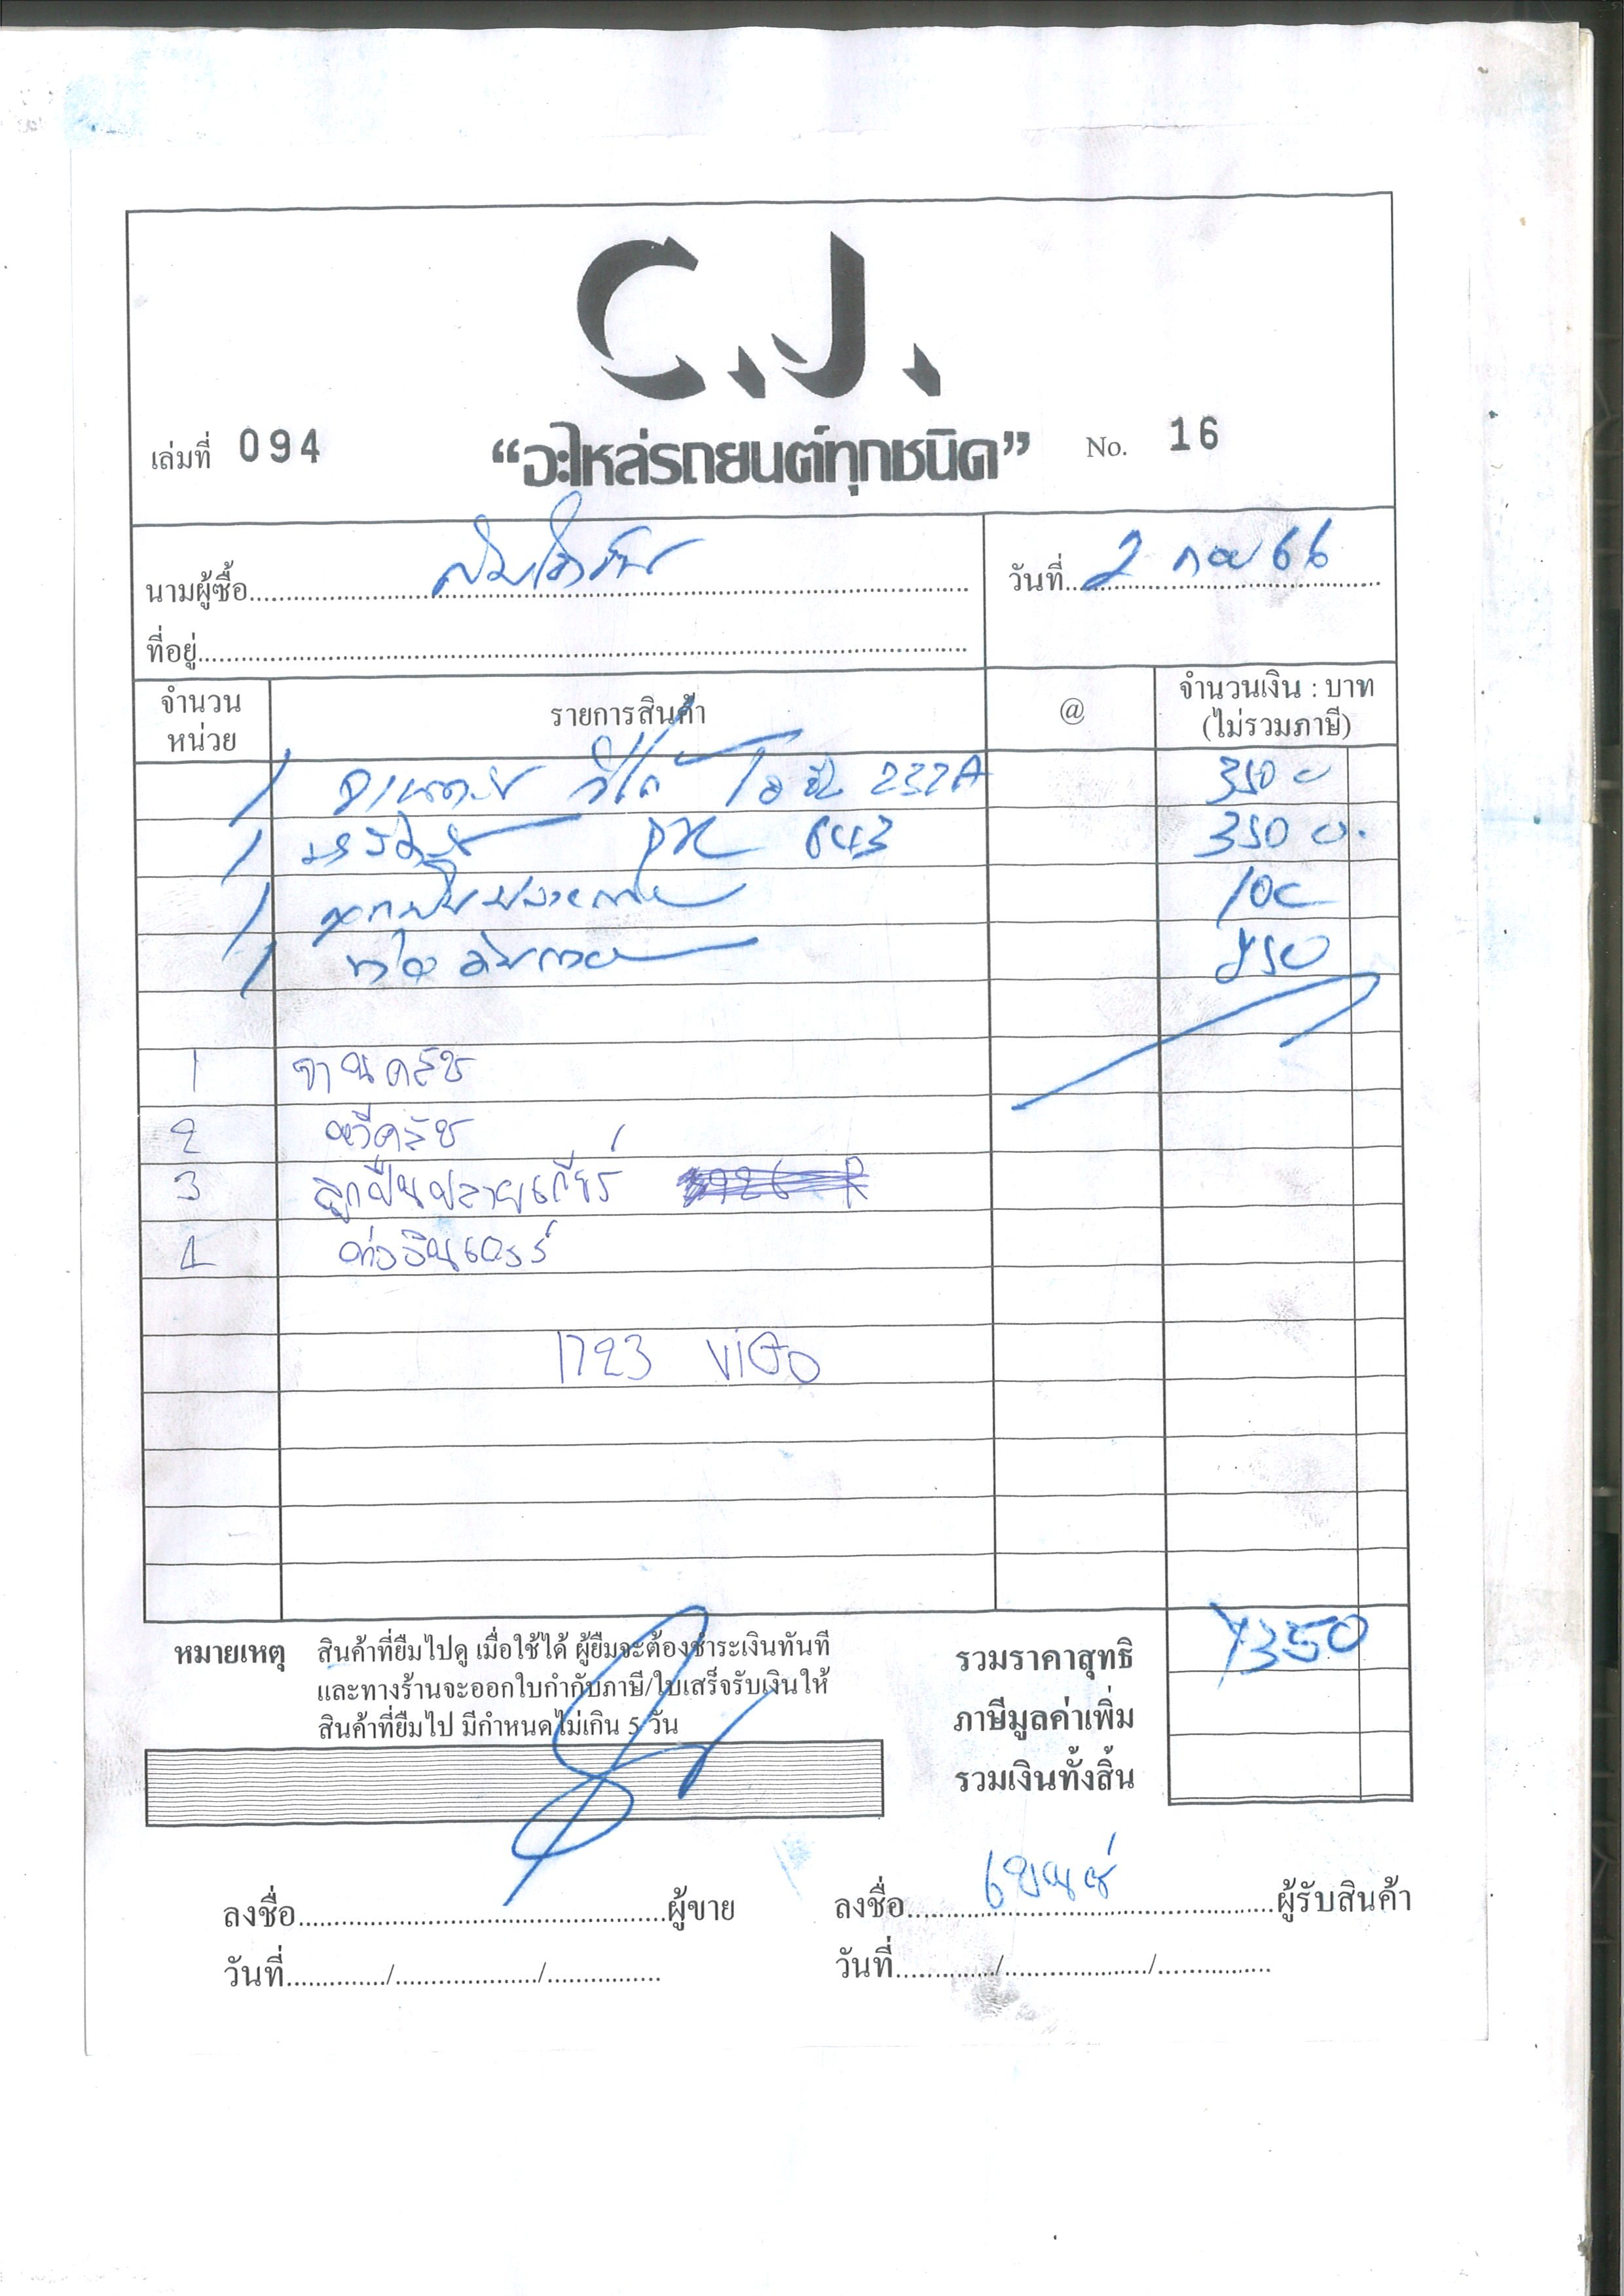 C.J.
เล่มที่ 094 “อะไหล่รถยนต์ทุกชนิด” No. 16
นามผู้ซื้อ วันที่ 2 กย 66
ที่อยู่
จำนวน หน่วย รายการสินค้า @ จำนวนเงิน : บาท (ไม่รวมภาษี)
1 232A 3500
1 643 3500.
1 100
1 250
1 จานครัช
2 หวีครัช
3 ลูกปืนปลายเกียร์
4 ท่ออินเตอร์
1723 ViGO
หมายเหตุ สินค้าที่ยืมไปดู เมื่อใช้ได้ ผู้ยืมจะต้องชำระเงินทันที รวมราคาสุทธิ 7350
และทางร้านจะออกใบกำกับภาษี/ใบเสร็จรับเงินให้
สินค้าที่ยืมไป มีกำหนดไม่เกิน 5 วัน ภาษีมูลค่าเพิ่ม
รวมเงินทั้งสิ้น
ลงชื่อ ผู้ขาย ลงชื่อ ผู้รับสินค้า
วันที่ / / วันที่ / /